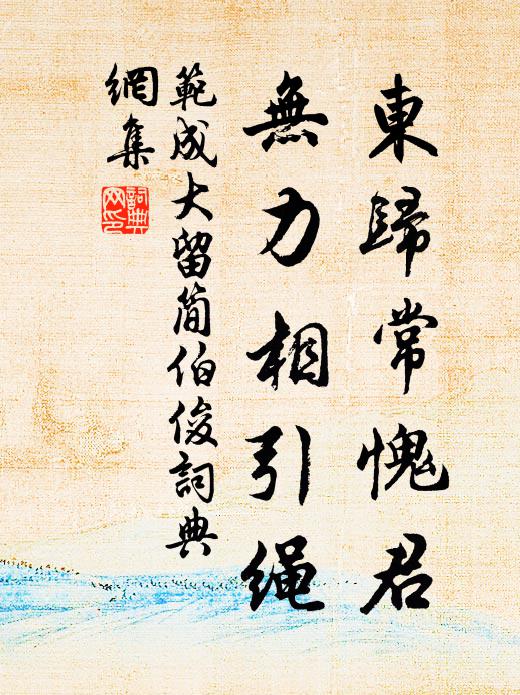 東歸常愧君
無力相引绳
範成大留简伯俊詞典
網集
詞典
网印